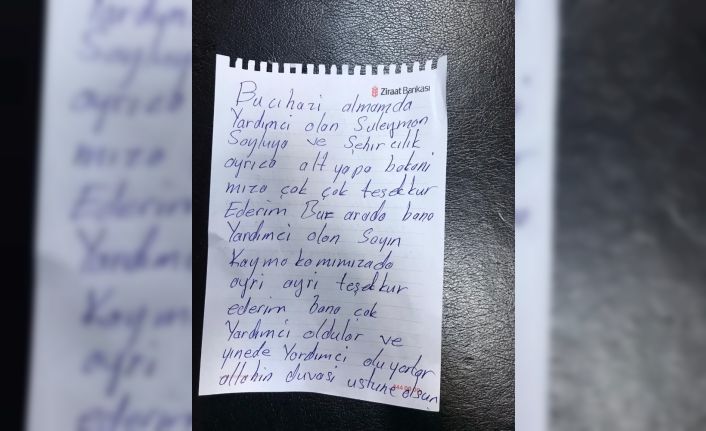 Ziraat Bankası
Bu cihazi almamda
Yardımci olan Suleyman
Soyluya ve Şehircilik
ayrıca alt yapa bakani
mıza çok çok teşekkur
Ederim Bur arada bana
Yardımci olan Sayın
Kaymakamımızada
ayri ayri teşekkur
ederim bana çok
Yardımci oldular ve
yinede Yardımci oluyorlar
allahin duvasi ustune olsun